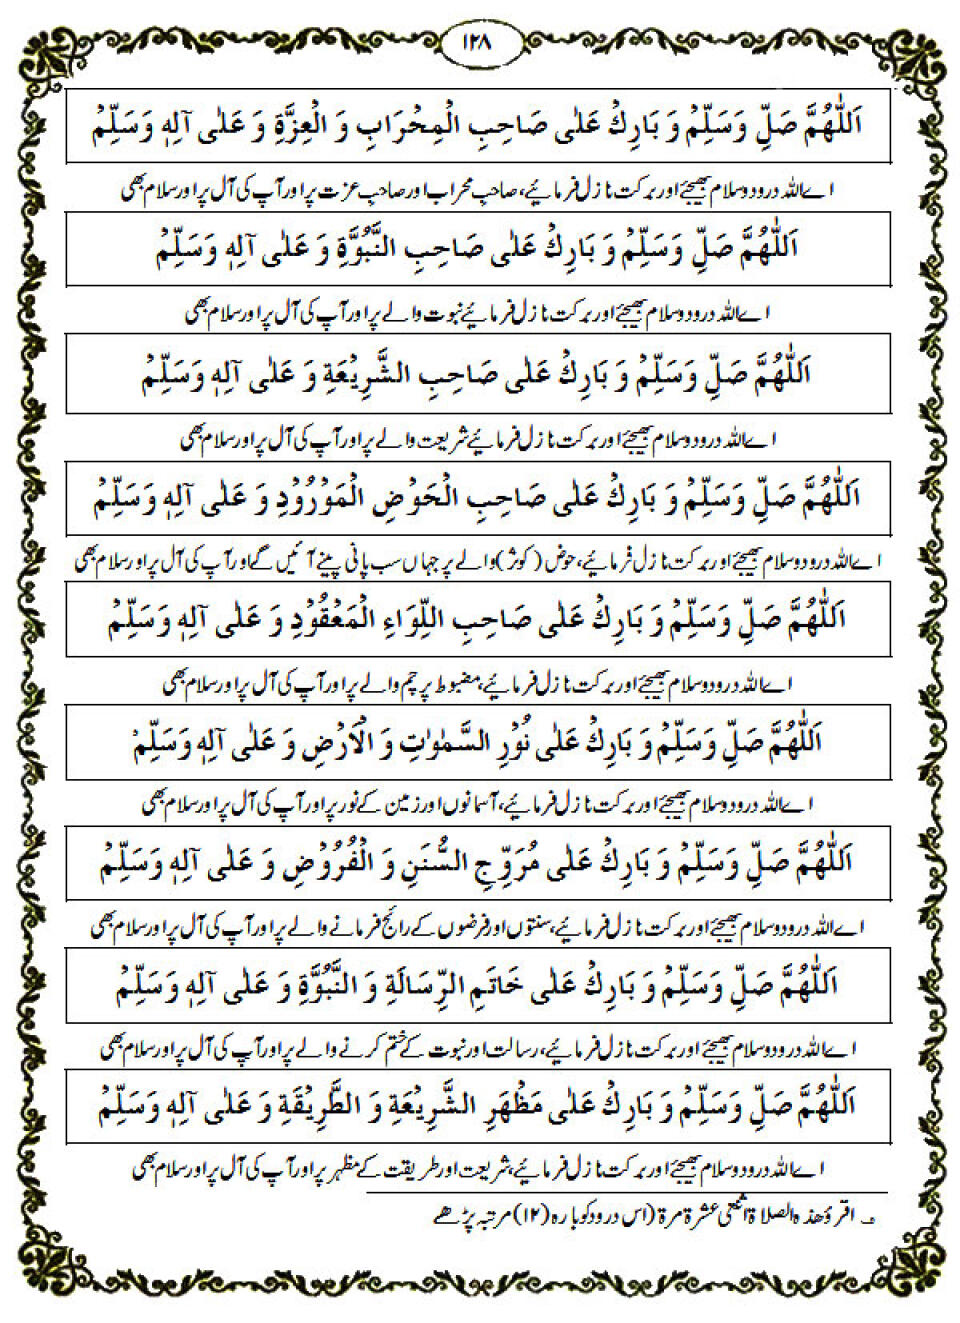 ۱۲۸
اَللّٰهُمَّ صَلِّ وَسَلِّمْ وَ بَارِكْ عَلٰى صَاحِبِ الْمِحْرَابِ وَ الْعِزَّةِ وَ عَلٰى آلِهٖ وَسَلِّمْ
اے اللہ درود و سلام بھیجئے اور برکت نازل فرمائیے، صاحبِ محراب اور صاحبِ عزت پر اور آپ کی آل پر اور سلام بھی
اَللّٰهُمَّ صَلِّ وَسَلِّمْ وَ بَارِكْ عَلٰى صَاحِبِ النُّبُوَّةِ وَ عَلٰى آلِهٖ وَسَلِّمْ
اے اللہ درود و سلام بھیجئے اور برکت نازل فرمائیے نبوت والے پر اور آپ کی آل پر اور سلام بھی
اَللّٰهُمَّ صَلِّ وَسَلِّمْ وَ بَارِكْ عَلٰى صَاحِبِ الشَّرِيْعَةِ وَ عَلٰى آلِهٖ وَسَلِّمْ
اے اللہ درود و سلام بھیجئے اور برکت نازل فرمائیے شریعت والے پر اور آپ کی آل پر اور سلام بھی
اَللّٰهُمَّ صَلِّ وَسَلِّمْ وَ بَارِكْ عَلٰى صَاحِبِ الْحَوْضِ الْمَوْرُوْدِ وَ عَلٰى آلِهٖ وَسَلِّمْ
اے اللہ درود و سلام بھیجئے اور برکت نازل فرمائیے، حوض (کوثر) والے پر جہاں سب پانی پینے آئیں گے اور آپ کی آل پر اور سلام بھی
اَللّٰهُمَّ صَلِّ وَسَلِّمْ وَ بَارِكْ عَلٰى صَاحِبِ اللِّوَاءِ الْمَعْقُوْدِ وَ عَلٰى آلِهٖ وَسَلِّمْ
اے اللہ درود و سلام بھیجئے اور برکت نازل فرمائیے، مضبوط پرچم والے پر اور آپ کی آل پر اور سلام بھی
اَللّٰهُمَّ صَلِّ وَسَلِّمْ وَ بَارِكْ عَلٰى نُوْرِ السَّمٰوٰتِ وَ الْاَرْضِ وَ عَلٰى آلِهٖ وَسَلِّمْ
اے اللہ درود و سلام بھیجئے اور برکت نازل فرمائیے، آسمانوں اور زمین کے نور پر اور آپ کی آل پر اور سلام بھی
اَللّٰهُمَّ صَلِّ وَسَلِّمْ وَ بَارِكْ عَلٰى مُرَوِّجِ السُّنَنِ وَ الْفُرُوْضِ وَ عَلٰى آلِهٖ وَسَلِّمْ
اے اللہ درود و سلام بھیجئے اور برکت نازل فرمائیے، سنتوں اور فرضوں کے رائج فرمانے والے پر اور آپ کی آل پر اور سلام بھی
اَللّٰهُمَّ صَلِّ وَسَلِّمْ وَ بَارِكْ عَلٰى خَاتَمِ الرِّسَالَةِ وَ النُّبُوَّةِ وَ عَلٰى آلِهٖ وَسَلِّمْ
اے اللہ درود و سلام بھیجئے اور برکت نازل فرمائیے، رسالت اور نبوت کے ختم کرنے والے پر اور آپ کی آل پر اور سلام بھی
اَللّٰهُمَّ صَلِّ وَسَلِّمْ وَ بَارِكْ عَلٰى مَظْهَرِ الشَّرِيْعَةِ وَ الطَّرِيْقَةِ وَ عَلٰى آلِهٖ وَسَلِّمْ
اے اللہ درود و سلام بھیجئے اور برکت نازل فرمائیے، شریعت اور طریقت کے مظہر پر اور آپ کی آل پر اور سلام بھی
اقرؤ ھذہ الصلاۃ اثنتی عشرۃ مرۃ (اس درود کو بارہ (۱۲) مرتبہ پڑھے